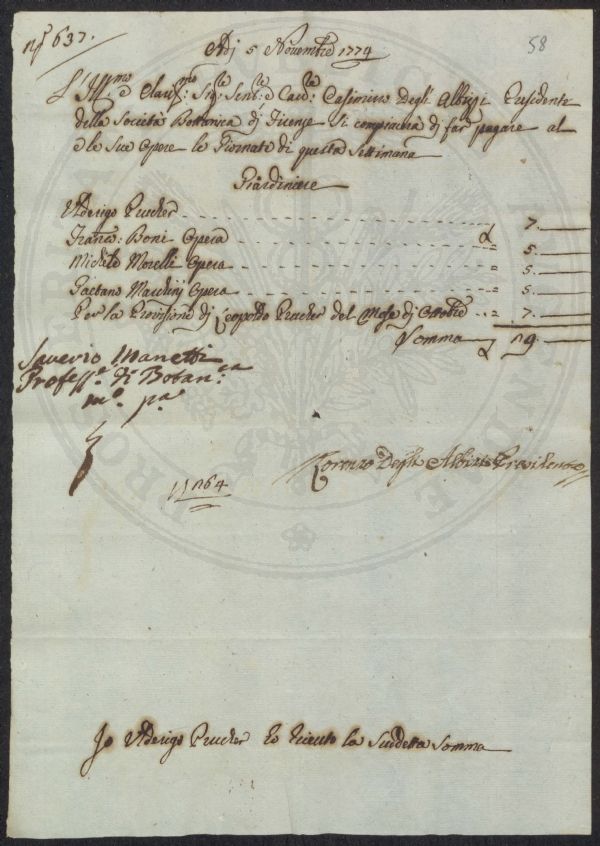 nº 637.
58
Adj 5 Novembre 1774
L'Ill:mo e Claris:mo Sig:re Sen:re e Cav:re Casimirro Degli Albizj Presidente
della Società Bottanica dj Firenze si compiacerà dj far pagare al
e le Sue Opere le Giornate di questa Settimana
Giardiniere
Ulderigo Prucher 7.
Franco: Boni Opera 5.
Michele Morelli Opera 5.
Gaetano Marchinj Opera 5.
Per la Provisione dj Leopoldo Prucher del Mese dj Ottobre 7.
Somma 29
Saverio Manetti
Profess:e di Botan:ca
mº pª
Degli Albizi Presidente
Jo Ulderigo Prucher ho riceuto la Suddetta Somma